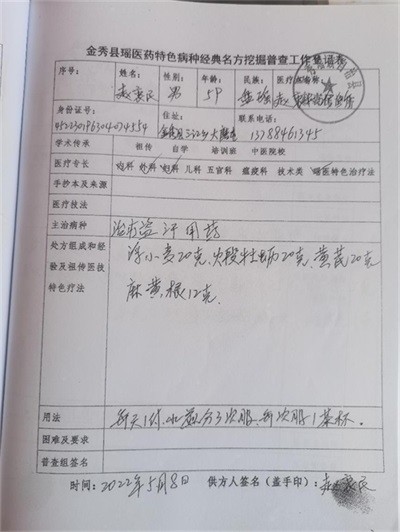 金秀县瑶医药特色病种经典名方挖掘普查工作登记表
序号: 姓名: 性别: 年龄: 民族: 医疗点名称:
男 58 盘瑶
身份证号: 住址: 联系电话:
金秀县三江乡 13788461345
学术传承 祖传 自学 培训班 中医院校
医疗专长 内科 外科 妇科 儿科 五官科 瘟疫科 技术类 瑶医特色治疗法
手抄本及来源
医疗技法
主治病种 治有盗汗用药
处方组成和经验及祖传医技特色疗法
浮小麦20克,火煅牡蛎20克,黄芪20克
麻黄根12克.
用法 每天1付,水煎分3次服,每次服1茶杯.
困难及要求
普查组签名
时间:2022年5月8日 供方人签名(盖手印):